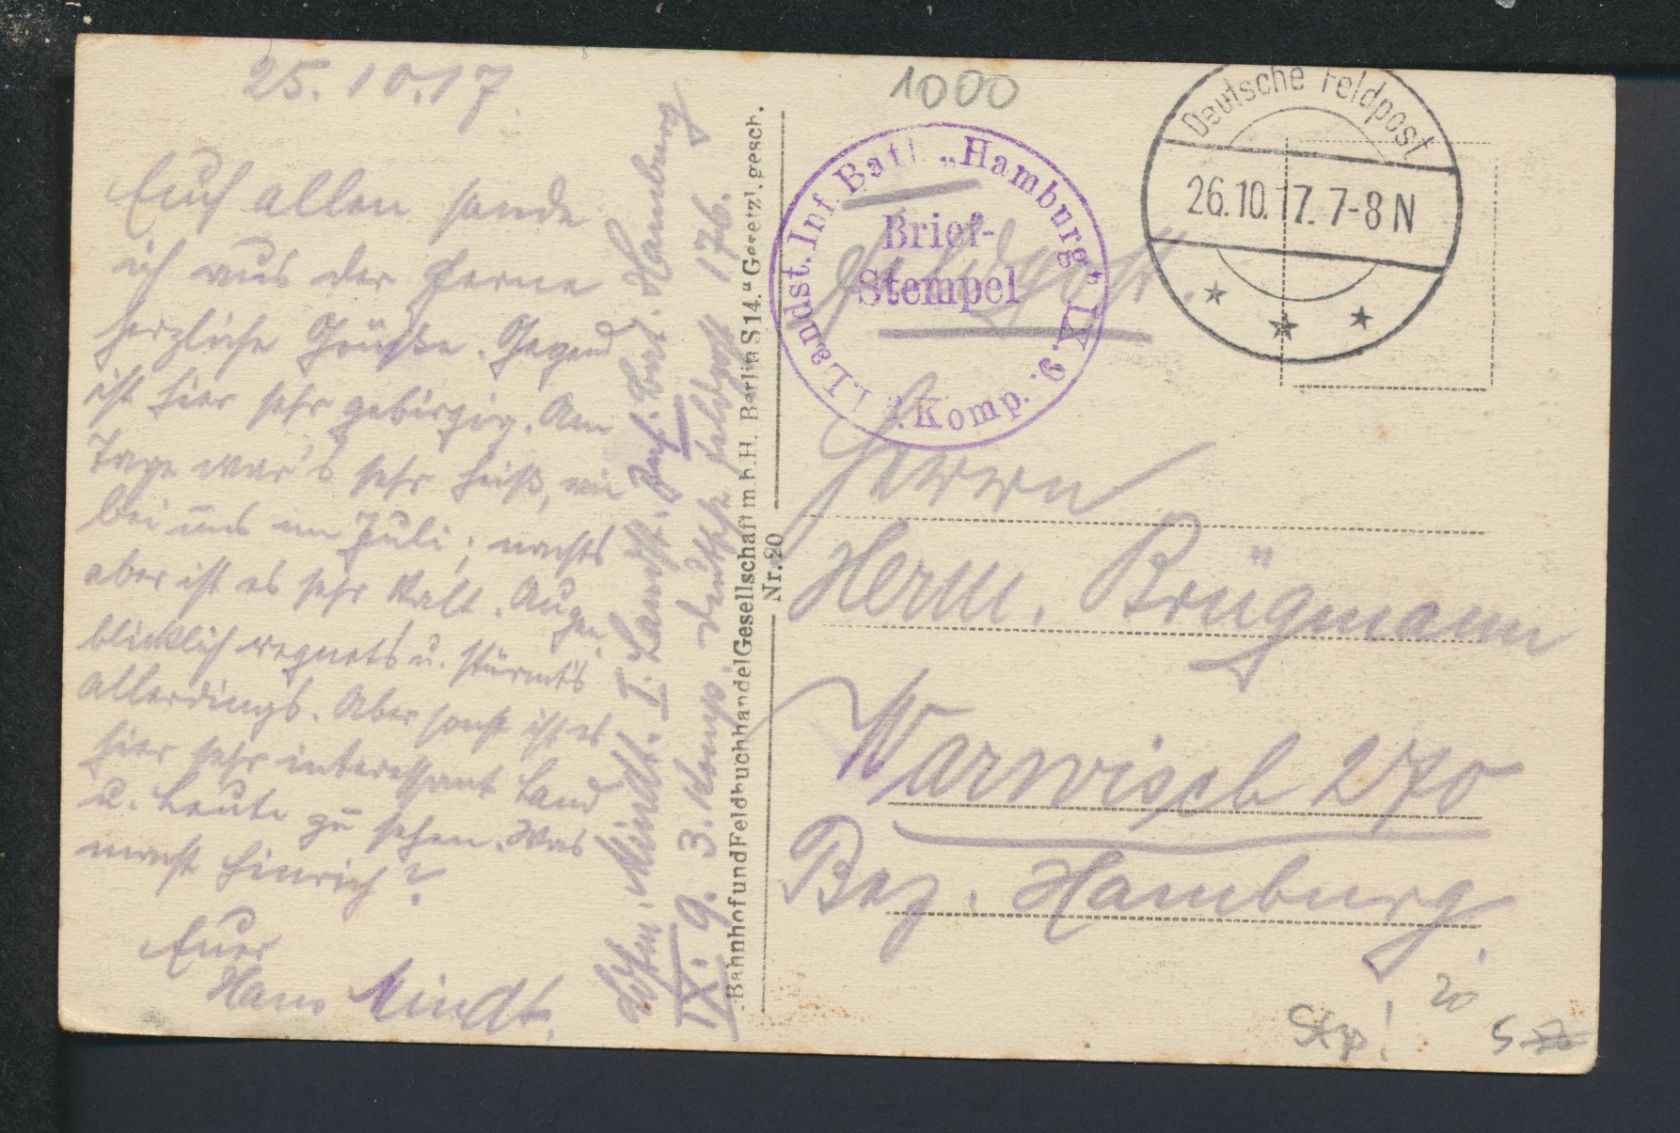 25.10.17.
Euch allen sende
ich aus der Ferne
herzliche Grüße. Gegend
ist hier sehr gebirgig. Am
Tage war's sehr heiß, wie
bei uns im Juli; nachts
aber ist es sehr kalt. Augen-
blicklich regnet's u. stürmt's
allerdings. Aber sonst ist es
hier sehr interessant Land
u. Leute zu sehen. Was
macht Hinrich?
Euer
Hans Mindt.
Mindt. I. Landst. Inf. Batl. Hamburg
IX. 9. 3. Komp. Deutsche Feldpost 176.
Bahnhof und Feldbuchhandel Gesellschaft m.b.H. Berlin S 14." Gesetzl. gesch.
Nr. 20
1000
I. Landst. Inf. Batl. „Hamburg" IX. 9.
Komp.
Brief-
Stempel
Deutsche Feldpost
26.10.17. 7-8 N
Feldpost.
Herrn
Herm. Brügmann
Warwisch 270
Bez. Hamburg.
20
Stp!
5